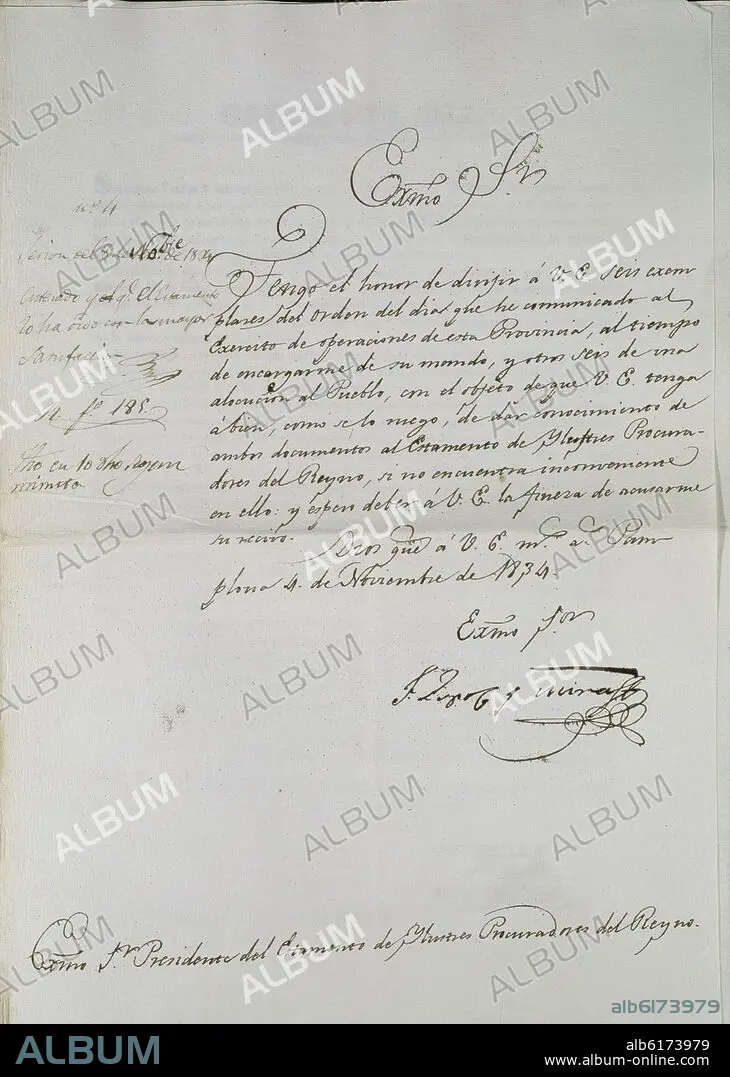 Exmo Sr
nº 4
Sesion del 8 de Nobre de 1834
Enterado y q.e El Estamento
lo ha oido con la mayor
satisfaccion
A fº 185
Tengo el honor de dirijir á V. E. seis exem
plares del orden del dia que he comunicado al
Exercito de operaciones de esta Provincia, al tiempo
de encargarme de su mando, y otros seis de una
alocucion al Pueblo, con el objeto de que V. E. tenga
abien, como se lo ruego, de dar conocimiento de
ambos documentos al Estamento de Ylustres Procura-
dores del Reyno, si no encuentra inconveniente
en ello: y espero deber á V. E. la fineza de acusarme
su recivo.
Dios gue á V. E. ms. as. Pam
plona 4. de Noviembre de 1834.
Exmo Sor
Exmo Sr Presidente del Estamento de Ylustres Procuradores del Reyno.
ALBUM
alb6173979
ALBUM
alb6173979
www.album-online.com